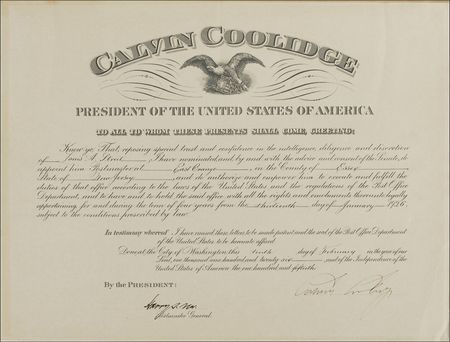 CALVIN COOLIDGE
PRESIDENT OF THE UNITED STATES OF AMERICA
TO ALL TO WHOM THESE PRESENTS SHALL COME, GREETING:
Know ye, That, reposing special trust and confidence in the intelligence, diligence and discretion
of Louis A. , I have nominated, and, by and with the advice and consent of the Senate, do
appoint him Postmaster at East Orange, in the County of Essex
State of New Jersey, and do authorize and empower him to execute and fulfill the
duties of that office according to the laws of the United States and the regulations of the Post Office
Department, and to have and to hold the said office with all the rights and emoluments thereunto legally
appertaining, for and during the term of four years from the thirteenth day of January 1926,
subject to the conditions prescribed by law
In testimony whereof I have caused these letters to be made patent and the seal of the Post Office Department
of the United States to be hereunto affixed
Done at the City of Washington this tenth day of February in the year of our
Lord, one thousand nine hundred and twenty six, and of the Independence of the
United States of America the one hundred and fiftieth.
By the PRESIDENT:
Harry S. New
Postmaster General.